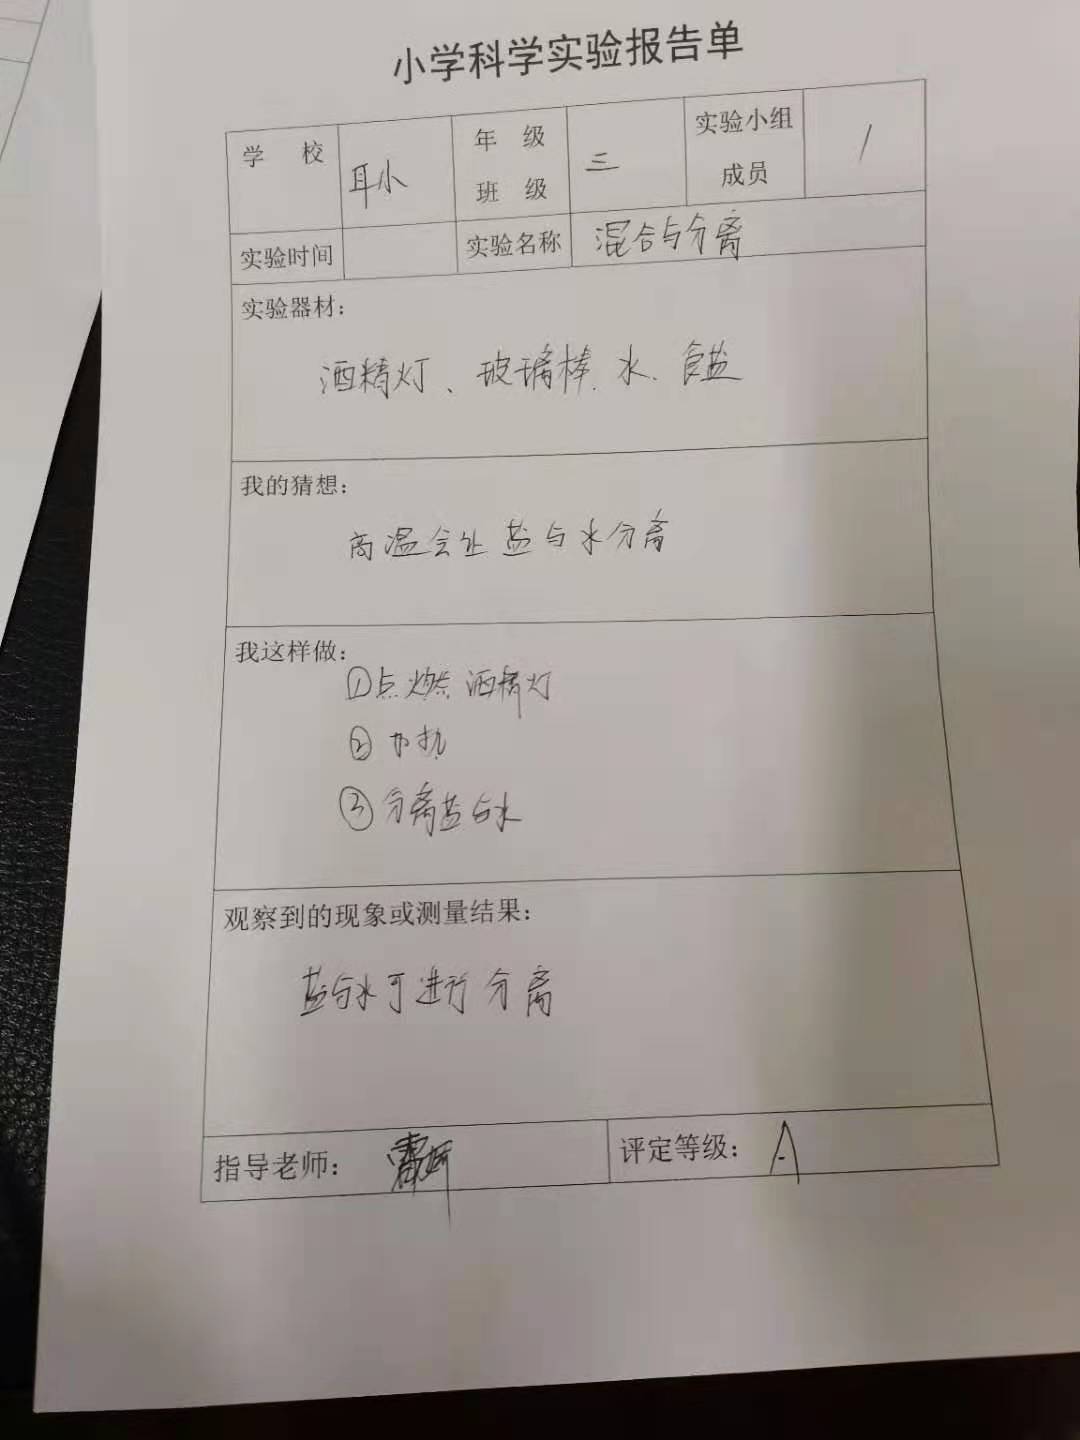 小学科学实验报告单
学 校 耳小 年 级 班 级 三 实验小组 成员 1
实验时间 实验名称 混合与分离
实验器材：
酒精灯、玻璃棒、水、食盐
我的猜想：
高温会让盐与水分离
我这样做：
①点燃酒精灯
②加热
③分离盐与水
观察到的现象或测量结果：
盐与水可进行分离
指导老师： 评定等级： A